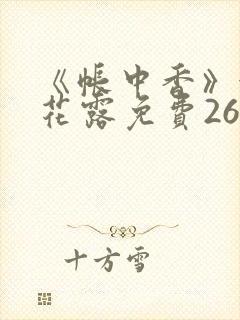 《帐中香》
花露免費26
十方雪